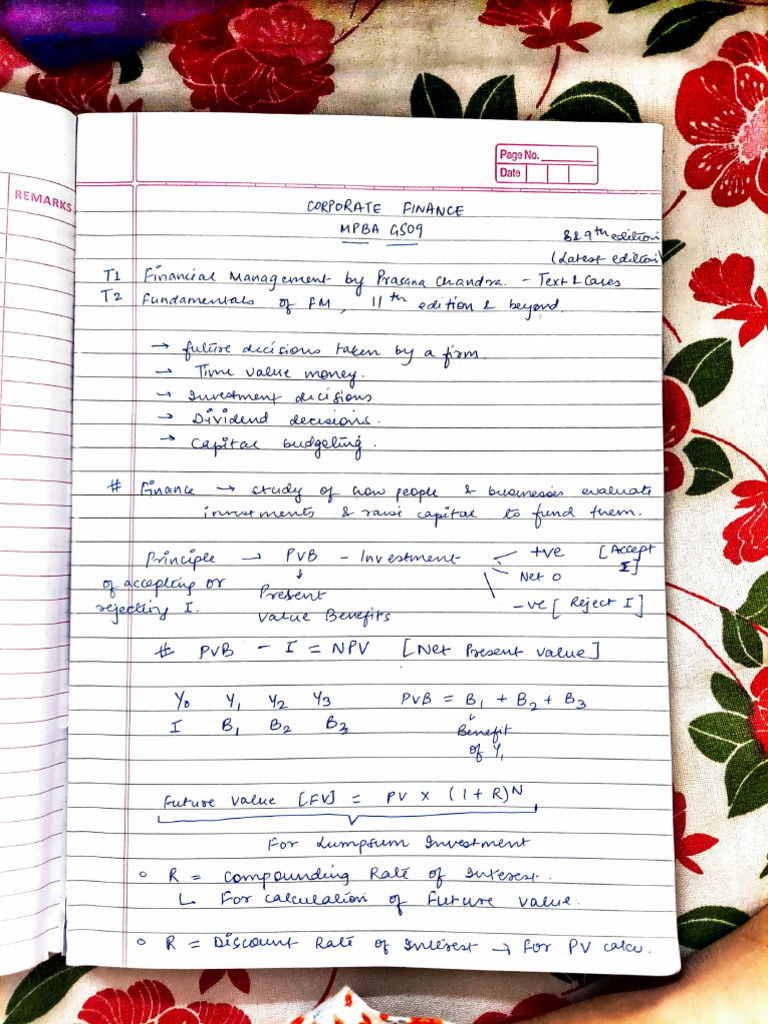 REMARKS
Page No.
Date
CORPORATE FINANCE
MPBA GS09
8 & 9th edition
(Latest edition)
T1 Financial Management by Prasana Chandra. - Text & Cases
T2 Fundamentals of FM, 11th edition & beyond.
→ future decisions taken by a firm.
→ Time value money.
→ Investment decisions
→ Dividend decisions.
→ Capital budgeting.
# Finance → study of how people & businesses evaluate
investments & raise capital to fund them.
Principle → PVB - Investment +ve [Accept I]
of accepting or rejecting I.
↓ Present Value Benefits
Net 0
-ve [Reject I]
# PVB - I = NPV [Net Present Value]
Y0 Y1 Y2 Y3 PVB = B1 + B2 + B3
I B1 B2 B3 ↓ Benefit
of Y1
Future Value [FV] = PV × (1 + R)^N
For Lumpsum Investment
○ R = Compounding Rate of Interest.
↳ For calculation of Future Value.
○ R = Discount Rate of Interest → For PV calcu.